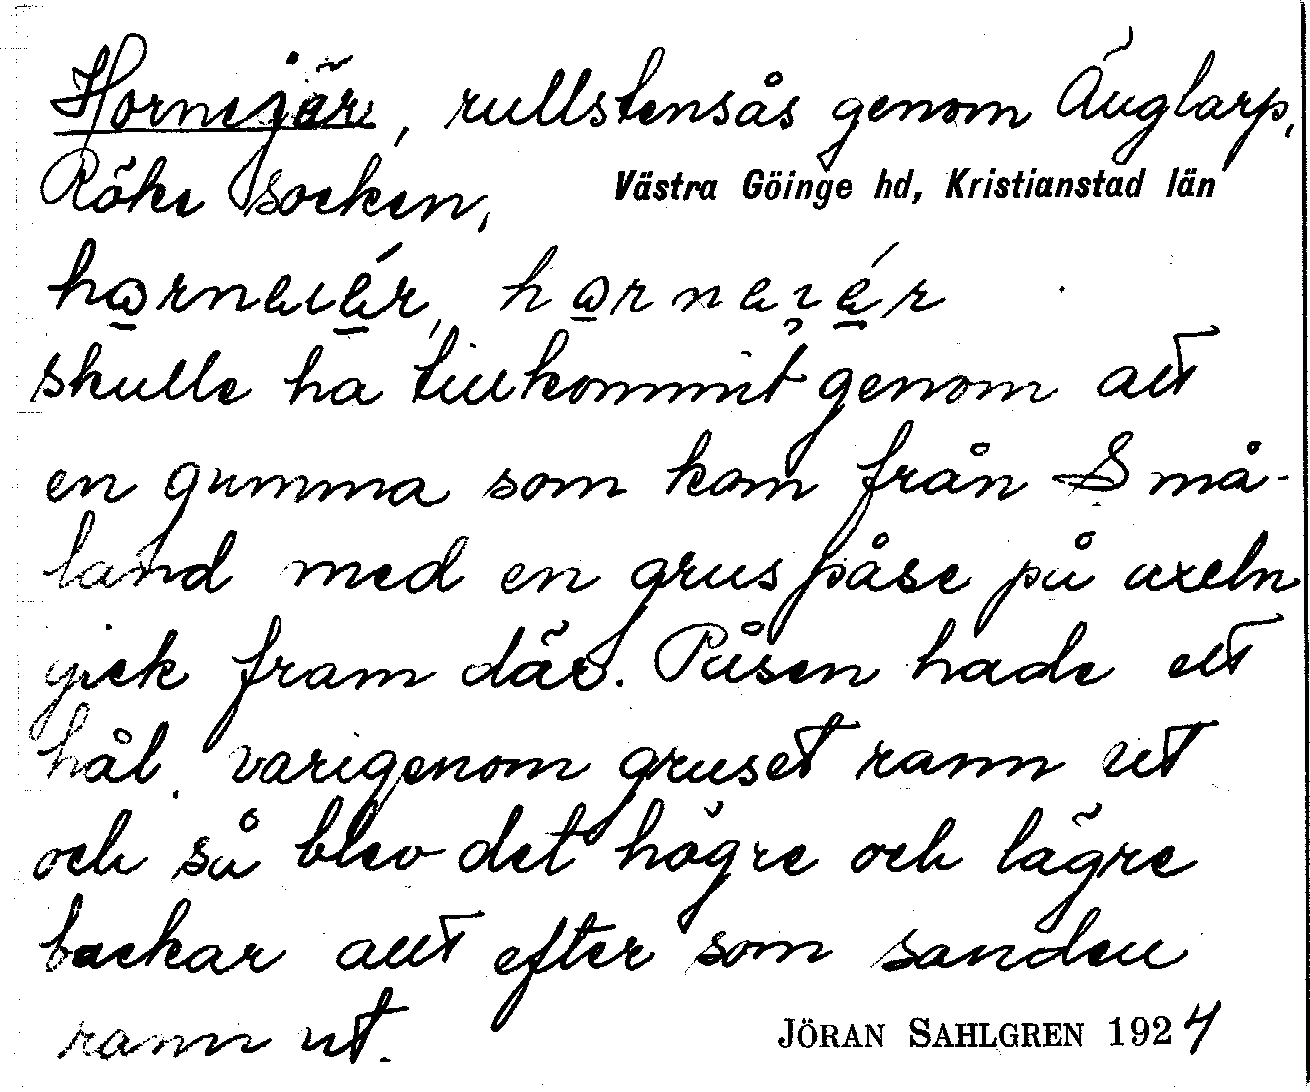 Hornejär, rullstensås genom Äuglarp,
Röke socken, Västra Göinge hd, Kristianstad län
skulle ha tillkommit genom att
en gumma som kom från Små-
land med en gruspåse på axeln
gick fram där. Påsen hade ett
hål, varigenom gruset rann ut
och så blev det högre och lägre
backar allt efter som sanden
rann ut.
JÖRAN SAHLGREN 1924